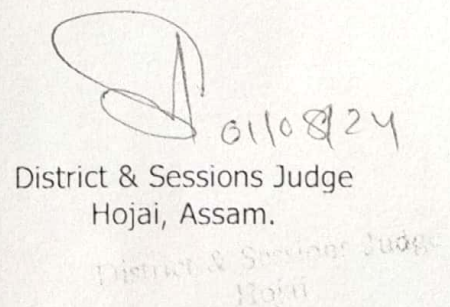 01/08/24
District & Sessions Judge
Hojai, Assam.
District & Sessions Judge
Hojai